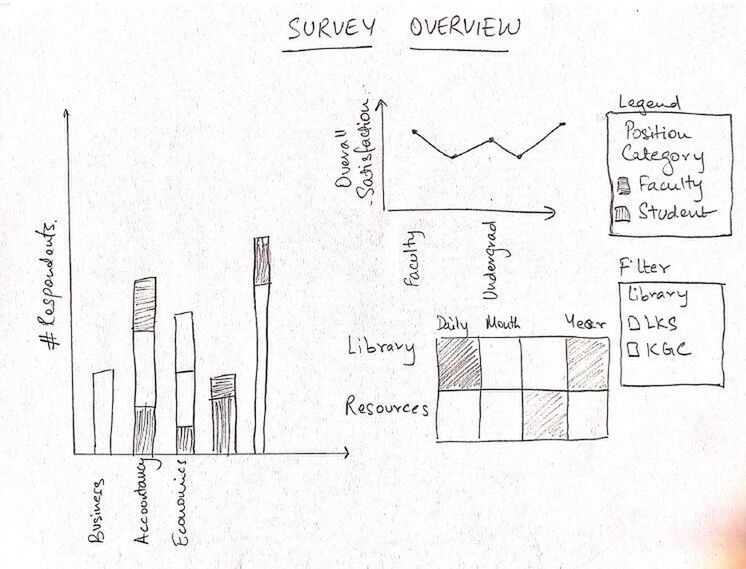 SURVEY OVERVIEW
# Respondents.
Business
Accountancy
Economics
Overall
Satisfaction
Faculty
Undergrad
Legend
Position
Category
Faculty
Student
Filter
Library
LKS
KGC
Daily Month Year
Library
Resources